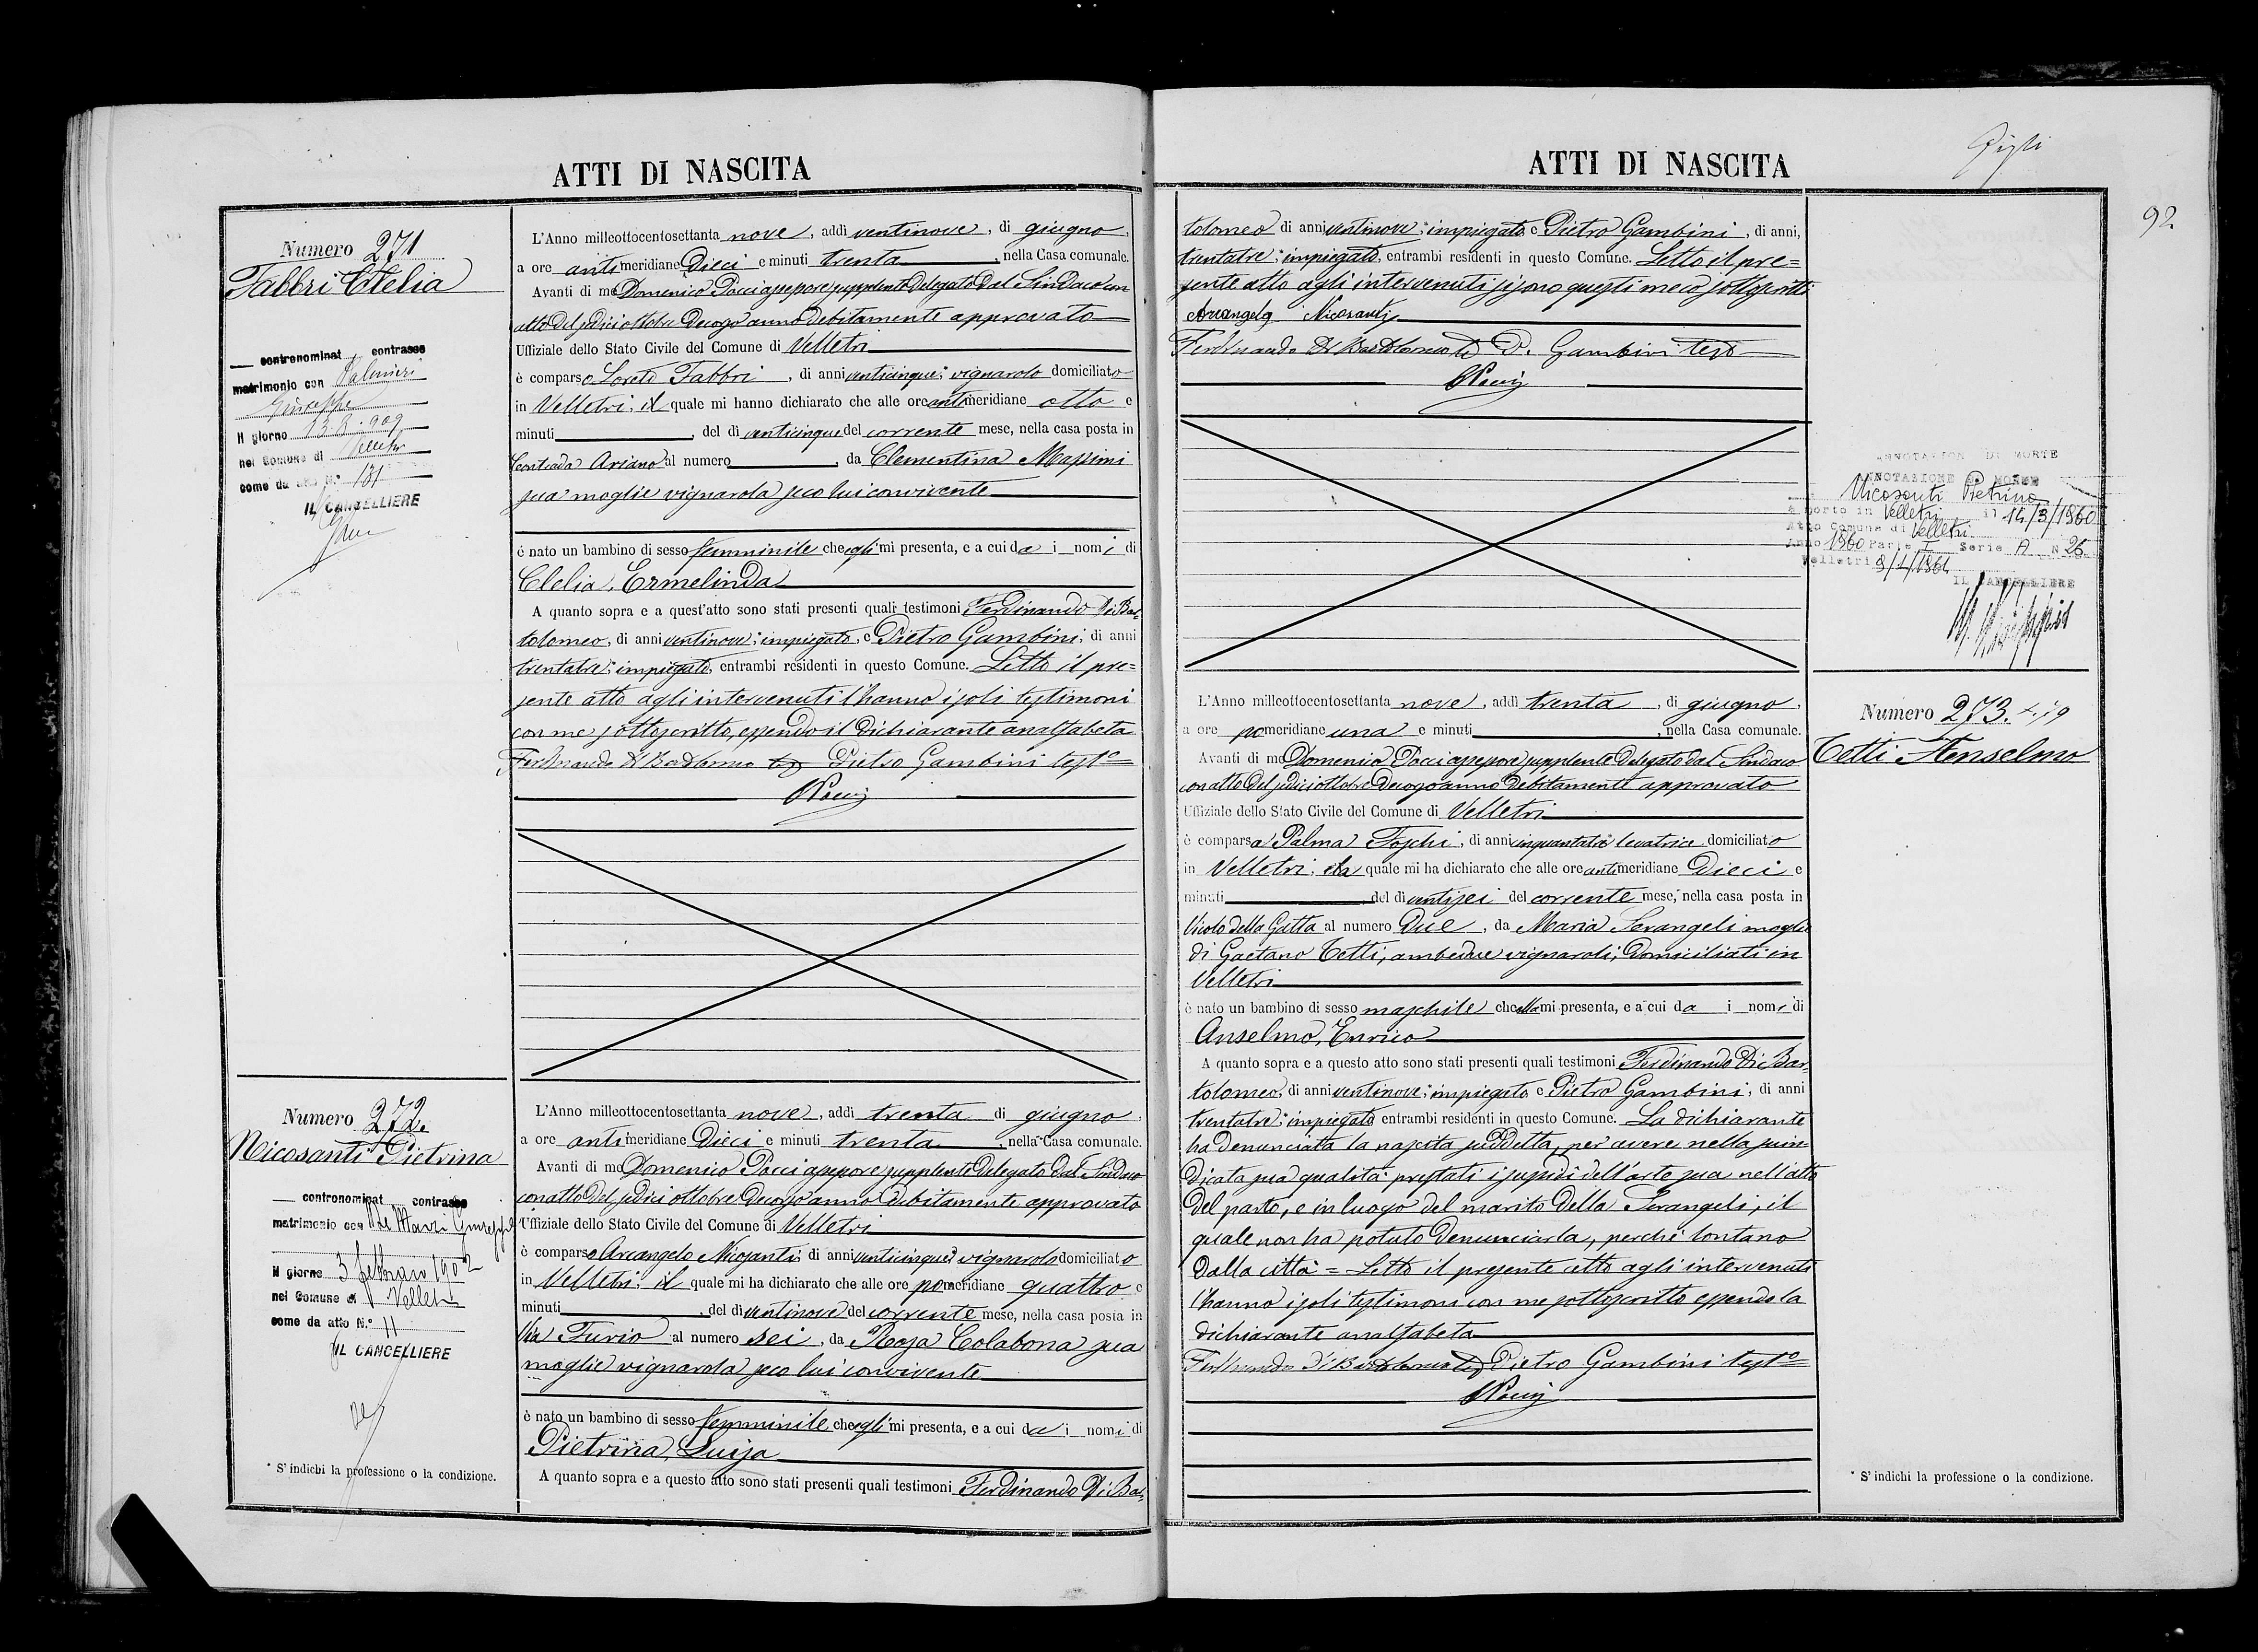 ATTI DI NASCITA
Numero 271
Fabbri Clelia
contronominat contrasse
matrimonio con Palmieri
Giuseppe
Il giorno 13. 909
nel Comune di Velletri
come da atto N.° 131
IL CANCELLIERE
L'Anno milleottocentosettanta nove, addì ventinove, di giugno,
a ore antimeridiane Dieci e minuti trenta, nella Casa comunale.
Avanti di me Domenico Pacci assessore supplente delegato dal Sindaco con
atto del sedici ottobre decorso anno debitamente approvato
Uffiziale dello Stato Civile del Comune di Velletri
è comparso Loreto Fabbri, di anni venticinque; vignarolo domiciliato
in Velletri; il quale mi hanno dichiarato che alle ore antimeridiane otto e
minuti , del dì venticinque del corrente mese, nella casa posta in
Contrada Ariano al numero , da Clementina Massimi
sua moglie vignarola seco lui convivente
è nato un bambino di sesso femminile che egli mi presenta, e a cui da i nomi di
Clelia, Ermelinda
A quanto sopra e a quest'atto sono stati presenti quali testimoni Ferdinando Di Bar-
tolomeo, di anni ventinove; impiegato, e Pietro Gambini, di anni
trentatre; impiegato, entrambi residenti in questo Comune. Letto il pre=
sente atto agli intervenuti l'hanno i soli testimoni
con me sottoscritto, essendo il dichiarante analfabeta
Ferdinando Di Bartolomeo Pietro Gambini testº
Numero 272.
Nicosanti Pietrina
contronominat contrasse
matrimonio con De Marzi Giuseppe
Il giorno 3 febbraio 1902
nel Comune di Velletri
come da atto N.° 11
IL CANCELLIERE
* S'indichi la professione o la condizione.
L'Anno milleottocentosettanta nove, addì trenta di giugno,
a ore antimeridiane Dieci e minuti trenta, nella Casa comunale.
Avanti di me Domenico Pacci assessore supplente delegato dal Sindaco
con atto del sedici ottobre decorso anno debitamente approvato
Uffiziale dello Stato Civile del Comune di Velletri
è comparso Arcangelo Nicosanti, di anni venticinque; vignarolo domiciliato
in Velletri; il quale mi ha dichiarato che alle ore pomeridiane quattro e
minuti , del dì ventinove del corrente mese, nella casa posta in
Via Furio al numero sei, da Rosa Colabona sua
moglie vignarola seco lui convivente
è nato un bambino di sesso femminile che egli mi presenta, e a cui da i nomi di
Pietrina, Luisa
A quanto sopra e a questo atto sono stati presenti quali testimoni Ferdinando Di Bar-
ATTI DI NASCITA
92
tolomeo di anni ventinove; impiegato e Pietro Gambini, di anni,
trentatre; impiegato, entrambi residenti in questo Comune. Letto il pre=
sente atto agli intervenuti si sono questi meco sottoscritti
Arcangelo Nicosanti
Ferdinando Di Bartolomeo P. Gambini test
ANNOTAZIONE DI MORTE
ANNOTAZIONE DI MORTE
Nicosanti Pietrina
è morto in Velletri il 14/3/1960
Atto Comune di Velletri
Anno 1960 Parte I Serie A N 25
Velletri 8/1/1964
IL CANCELLIERE
L'Anno milleottocentosettanta nove, addì trenta, di giugno,
a ore pomeridiane una e minuti , nella Casa comunale.
Avanti di me Domenico Pacci assessore supplente delegato dal Sindaco
con atto del sedici ottobre decorso anno debitamente approvato
Uffiziale dello Stato Civile del Comune di Velletri
è comparsa Palma Foschi, di anni cinquantatre; levatrice domiciliato
in Velletri; la quale mi ha dichiarato che alle ore antimeridiane Dieci e
minuti del dì ventisei del corrente mese, nella casa posta in
Vicolo della Gatta al numero Due, da Maria Serangeli moglie
di Gaetano Tetti, ambedue vignaroli, Domiciliati in
Velletri
è nato un bambino di sesso maschile che ella mi presenta, e a cui da i nomi di
Anselmo, Enrico
A quanto sopra e a questo atto sono stati presenti quali testimoni Ferdinando Di Bar-
tolomeo, di anni ventinove; impiegato e Pietro Gambini, di anni
trentatre; impiegato entrambi residenti in questo Comune. La dichiarante
ha denunciata la nascita suddetta, per avere nella suin=
dicata sua qualità prestati i sussidi dell'arte sua nell'atto
del parto, e in luogo del marito della Serangeli, il
quale non ha potuto denunciarla, perchè lontano
dalla città = Letto il presente atto agli intervenuti
l'hanno i soli testimoni con me sottoscritto essendo la
dichiarante analfabeta
Ferdinando Di Bartolomeo Pietro Gambini testº
Numero 273.
Tetti Anselmo
* S'indichi la professione o la condizione.